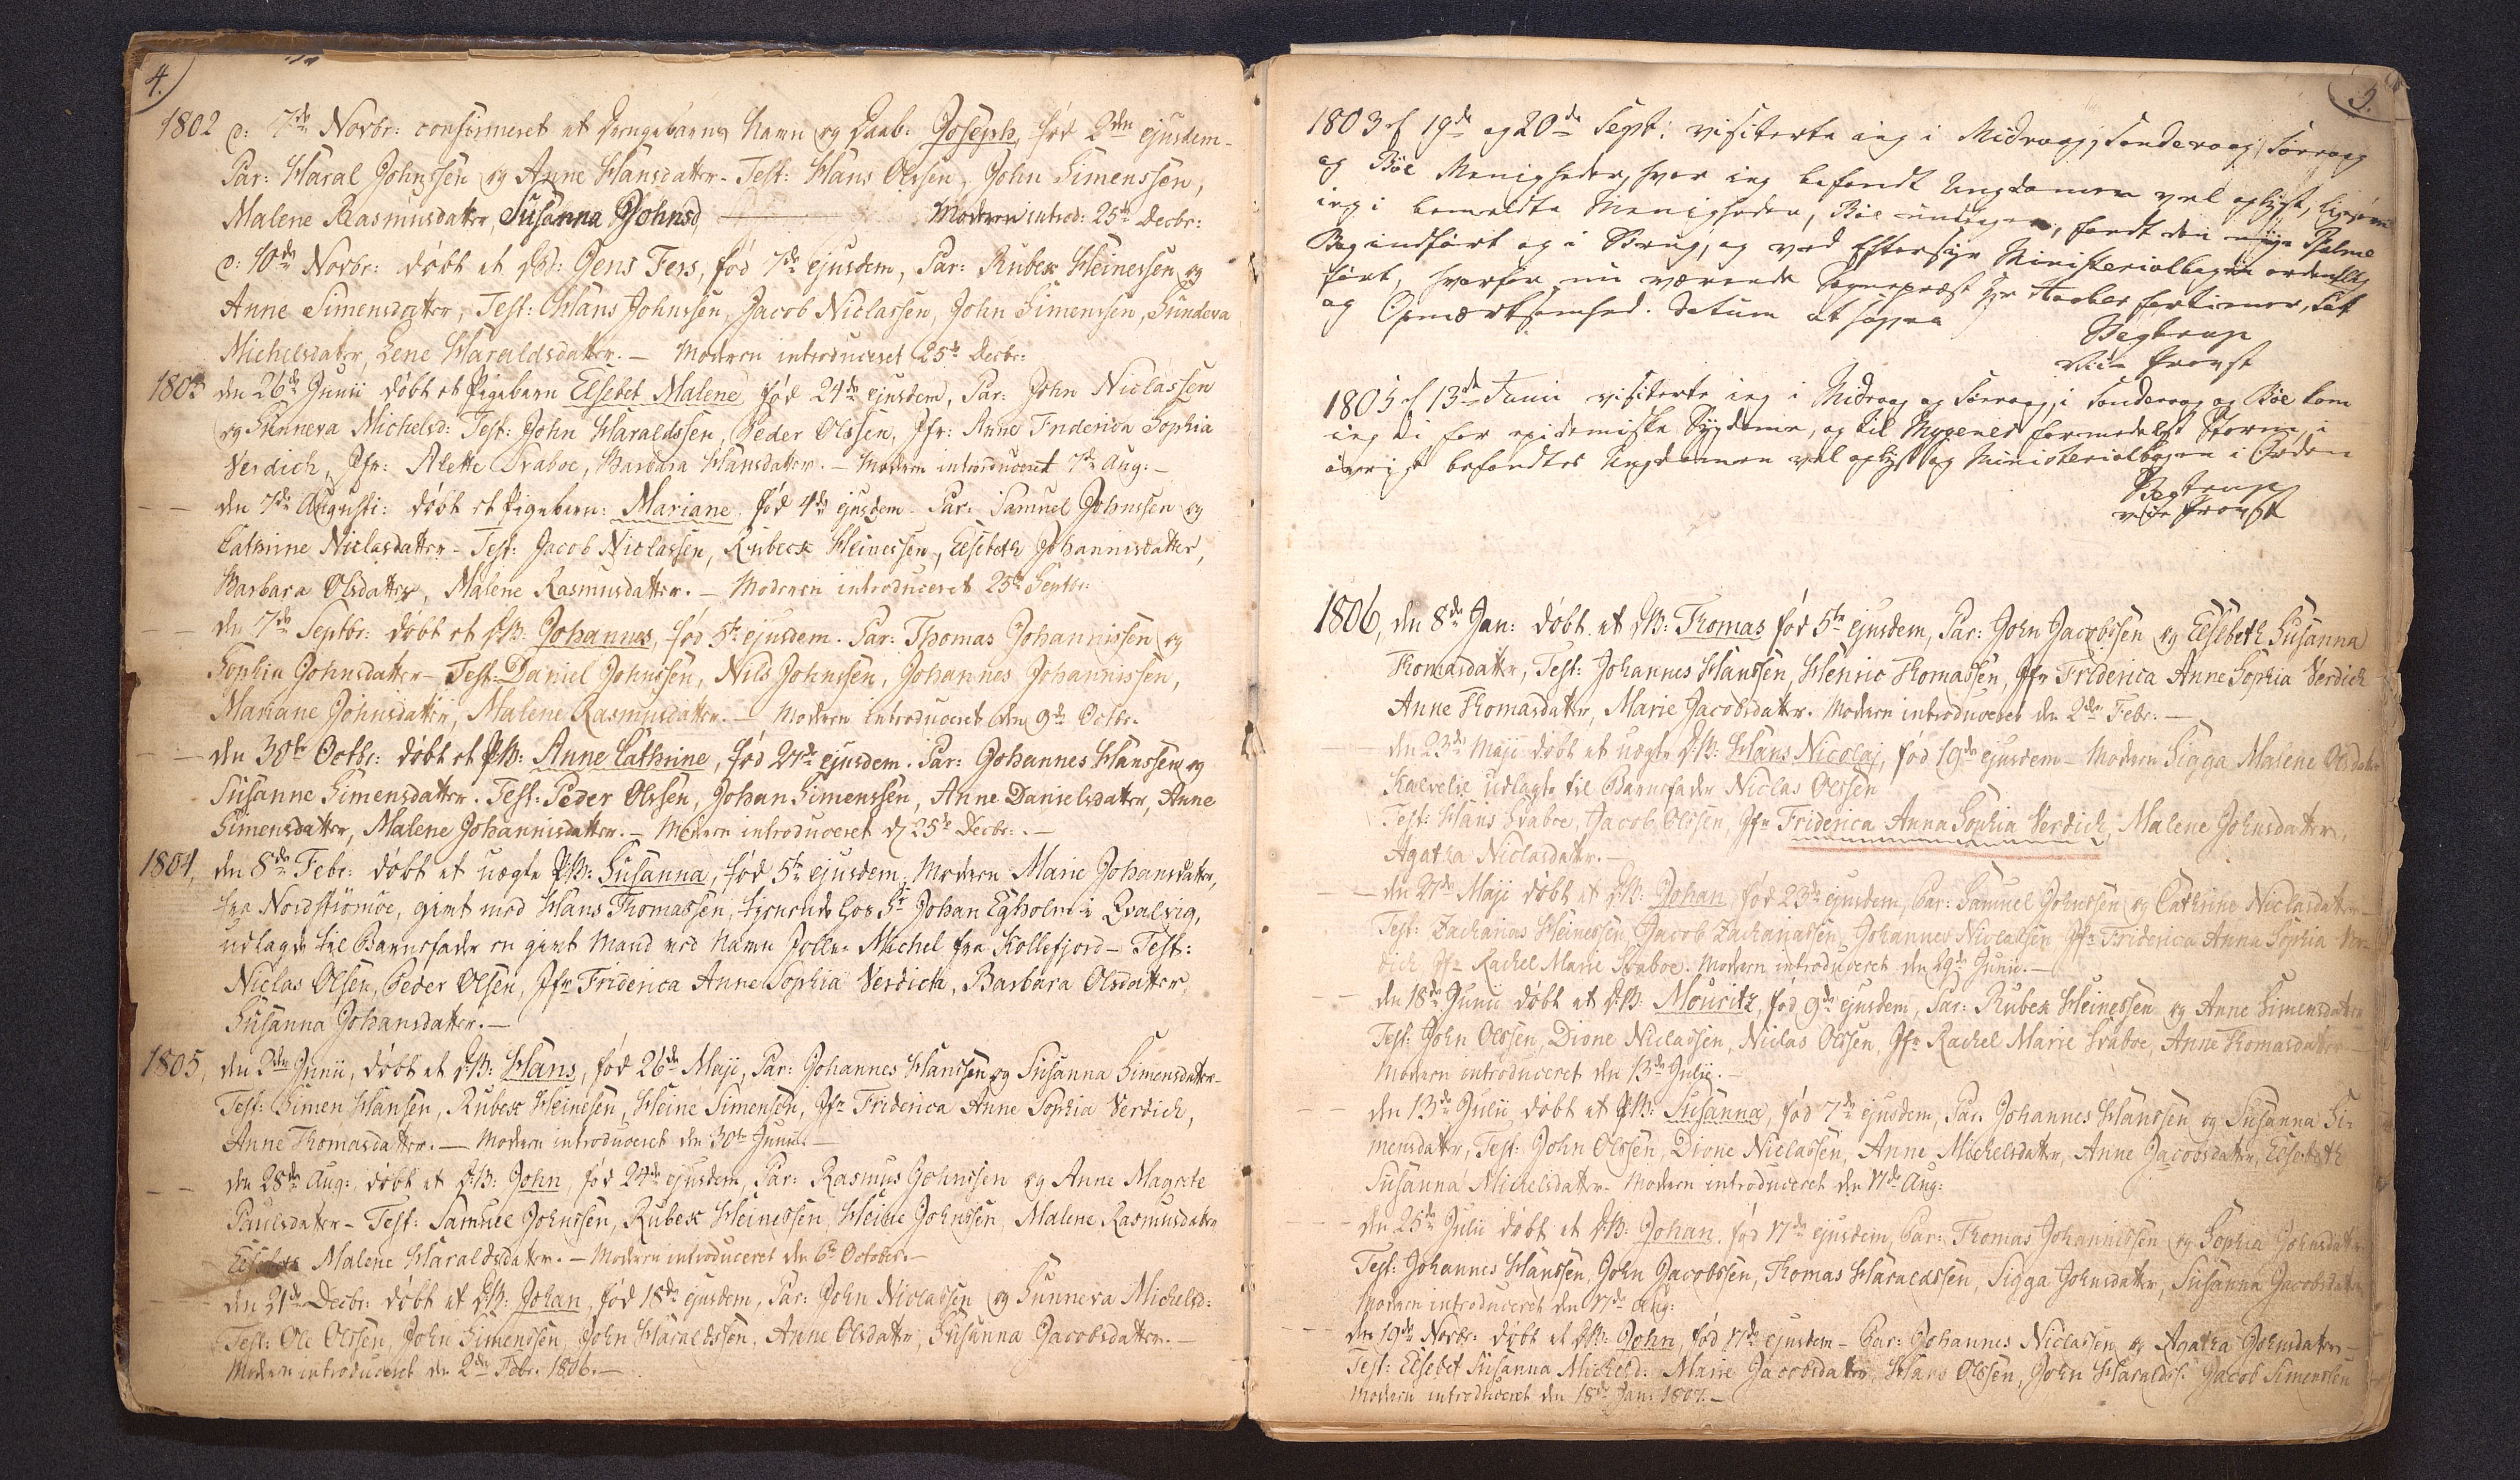 4.
1802 d: 7de Novbr: confirmeret et Drengebarns Navn og Daab: Joseph, fød 2den ejusdem-
Par: Haral Johnssen og Anne Hansdatter - Test: Hans Olssen, John Simenssen,
Malene Rasmusdatter, Susanna Johnsd Modren introd: 25de Decbr:
d: 10de Novbr: døbt et DB: Jens Fers, fød 7de ejusdem, Par: Rubex Heinessen og
Anne Simensdatter, Test: Hans Johnssen, Jacob Niclassen, John Simenssen, Sunneva
Michelsdatter, Lene Haraldsdatter. — Modren introduceret 25de Decbr:
1803 den 26de Junii døbt et Pigebarn Elsebet Malene fød 24de ejusdem, Par: John Niclassen
og Sunneva Michelsd: Test: John Haraldssen, Peder Olssen, Jfr: Anne Friderica Sophia
Verdich, Jfr: Alette Svaboe, Barbara Hansdatter. — Modren introduceret 7de Aug: -
— — den 7de Augusti: døbt et Pigebarn: Mariane, fød 4de ejusdem - Par: Samuel Johnssen og
Cathrine Niclasdatter - Test: Jacob Niclassen, Rubeck Heinessen, Elsebeth Johannisdatter,
Barbara Olsdatter, Malene Rasmusdatter. — Modren introduceret 25de Septbr:
— — den 7de Septbr: døbt et DB: Johannes, fød 5te ejusdem. Par: Thomas Johannissen og
Sophia Johnsdatter - Test: Daniel Johnssen, Nils Johnssen, Johannes Johannissen,
Mariane Johnsdatter, Malene Rasmusdatter. — Modren introduceret den 9de Octbr.
— — den 30te Octbr: døbt et PB: Anne Cathrine, fød 27de ejusdem. Par: Johannes Hanssen og
Susanne Simensdatter. Test: Peder Olssen, Johan Simenssen, Anne Danielsdatter, Anne
Simensdatter, Malene Johannisdatter. — Modren introduceret d 25de Decbr: . —
1804, den 8de Febr: døbt et uægte PB: Susanna, fød 5te ejusdem; Modren Marie Johansdatter,
fra Nordstrømøe, givt med Hans Thomassen, tjenende hos Sr Johan Egholm i Qvalvig,
udlagde til Barnefader en givt Mand ved Navn Michel fra Kollefjord - Test:
Niclas Olsen, Peder Olsen, Jfr Friderica Anne Sophia Verdich, Barbara Olsdatter,
Susanna Johansdatter. —
1805, den 2den Junii, døbt et DB: Hans, fød 26de Maji, Par: Johannes Hanssen og Susanna Simensdatter-
Test: Simen Hansen, Rubex Heinesen, Heine Simensen, Jfr Friderica Anne Sophia Verdich,
Anne Thomasdatter. — Modren introduceret den 30te Junii. —
— — den 28de Aug: døbt et DB: John, fød 24de ejusdem, Par: Rasmus Johnssen og Anne Magrete
Paulsdatter - Test: Samuel Johnssen, Rubex Heinessen, Heine Johnssen, Malene Rasmusdatter
Elsebet Malene Haraldsdatter. — Modren introduceret den 6te October. —
den 21de Decbr: døbt et DB: Johan, fød 18de ejusdem, Par: John Niclassen og Sunneva Michelsd:
Test: Ole Olssen, John Simenssen, John Haraldssen, Anne Olsdatter, Susanna Jacobsdatter. —
Modren introduceret den 2den Febr. 1806. —
5.
1803 d 19de og 20de Sept: visiterte ieg i Midvaag, Sandevaag, Sørvaag
og Bøe Menigheder, hvor ieg befandt Ungdommen vel oplyst, ligesom
ieg i bemeldte Menigheder, Bøe undtagen, fandt den nyye Psalme
Bog indført og i Brug, og ved Eftersyn Ministerialbogen ordentlig
ført, hvorfor nu værende Sognepræst Hr fortiener, Tak
og Opmærksomhed. Datum ut supra
Begtrup
vice Provst
1805 d 13de Juni visiterte ieg i Midvaag og Sørvaag, i Sandevaag og Bøe kom
ieg ei for epidemiske Sygdome, og til Mygenes formedelst Storm, i
øvrigt befandtes Ungdommen vel oplyst og Ministerialbogen i Orden
Begtrup
vice Provst
1806, den 8de Jan: døbt et DB: Thomas fød 5te ejusdem, Par: John Jacobssen og Elsebeth Susanna
Thomasdatter, Test: Johannes Hanssen, Henric Thomassen, Jfr Friderica Anne Sophia Verdich
Anne Thomasdatter, Marie Jacobsdatter. Modren introduceret den 2den Febr: —
den 23de Maji døbt et uægte DB: Hans Nicolaj, fød 19de ejusdem - Modren Sigga Malene Olsdatter
Kalvelie udlagte til Barnefader Niclas Olssen
Test: Hans Svaboe, Jacob Olssen, Jfr Friderica Anna Sophia Verdich, Malene Johnsdatter,
Agatha Niclasdatter. —
— — den 27de Maji døbt et DB: Johan fød 23de ejusdem, Par: Samuel Johnssen og Cathrine Niclasdatter —
Test: Zacharias Heinessen, Jacob Zachariassen, Johannes Niclassen, Jfr Friderica Anna Sophia Ver-
dich Jfr Rachel Marie Svaboe. Modren introduceret den 29de Junii. —
— — den 18de Junii døbt et DB: Mouritz, fød 9de ejusdem, Par: Rubex Heinessen og Anne Simensdatter
Test: John Olssen, Dione Niclassen, Niclas Olssen, Jfr Rachel Marie Svaboe, Anne Thomasdatter —
Modren introduceret den 13de Julii. —
— — den 13de Julii døbt et PB: Susanna, fød 7de ejusdem, Par: Johannes Hanssen og Susanna Si-
mensdatter, Test: John Olssen, Dione Niclassen, Anne Michelsdatter, Anne Jacobsdatter, Elsebeth
Susanna Michelsdatter - Modren introduceret den 17de Aug:
— — den 25de Julii døbt et DB: Johan, fød 17de ejusdem, Par: Thomas Johannissen og Sophia Johnsdatter
Test: Johannes Hanssen, John Jacobssen, Thomas Haraldssen, Sigga Johnsdatter, Susanna Jacobsdatter
Modren introduceret den 17de Aug:
— — den 19de Novbr: døbt et DB: John, fød 17de ejusdem - Par: Johannes Niclassen og Agatha Johnsdatter —
Test: Elsebet Susanna Michelsd: Marie Jacobsdatter, Hans Olssen, John Haraldss: Jacob Simenssen
Modren introduceret den 18de Jan: 1807. —